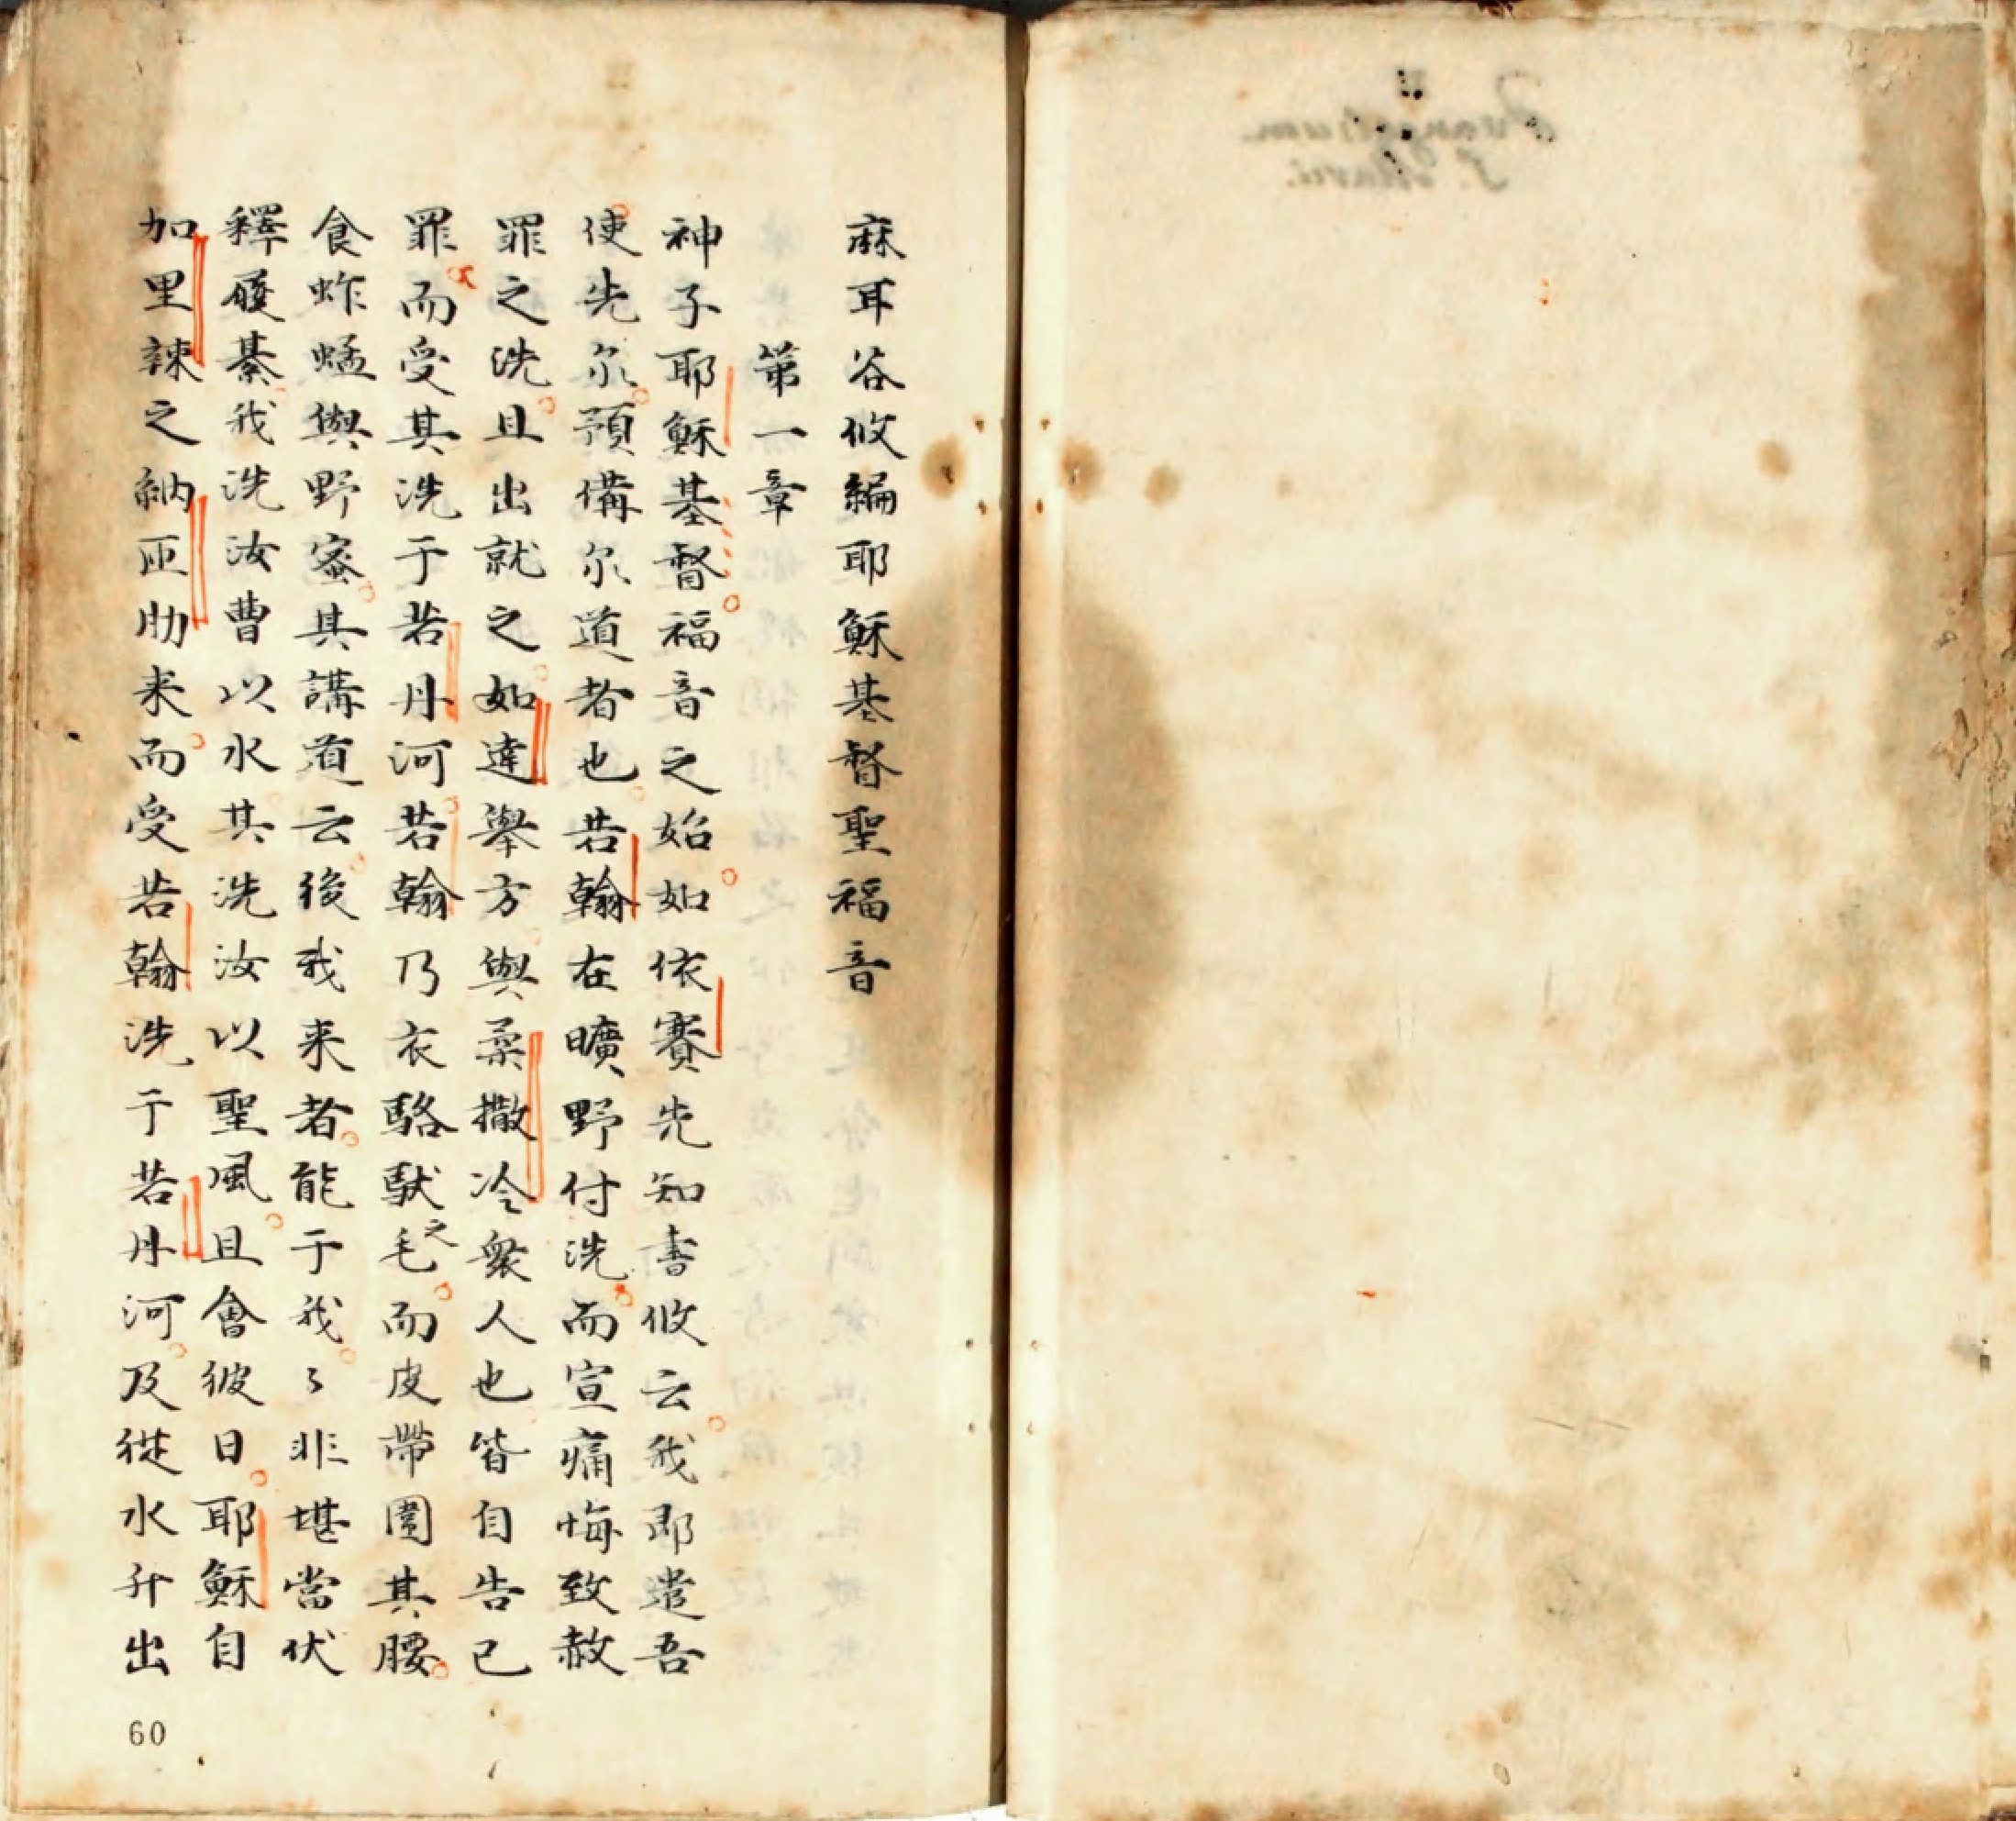 麻耳谷攸編耶穌基督聖福音
第一章
神子耶穌基督福音之始如依賽先知書攸云我即遣吾
使先尔預備尔道者也若翰在曠野付洗而宣痛悔致赦
罪之洗且出就之如達舉方與柔撒冷衆人也皆自告已
罪而受其洗于若丹河若翰乃衣駱駄之毛而皮帶圍其腰
食蚱蜢與野蜜其講道云後我来者能于我〻非堪當伏
釋屨綦我洗汝曹以水其洗汝以聖風且會彼日耶穌自
加里辣之納匝肋来而受若翰洗于若丹河及從水升出
60